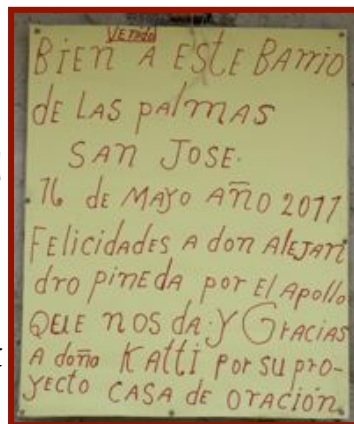 Venido
Bien A EstE BArrio
de LAs PalmAs
SAn JosE.
16 de MAyo Año 2011
FElicidAdes A don AlEjAn
dro pineda por El Apollo
QuE nos da. Y GrAciAs
A doña KAtti por su pro-
yecto CASA de orAción